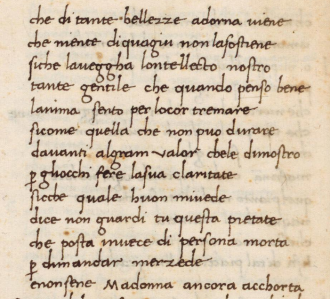 che di tante bellezze adorna uiene
che niente di quagiu non lasostiene
siche laueggha lontellecto nostro
tante gentile che quando penso bene
lanima sento per locor tremare
sicome quella che non puo durare
dauanti algram valor chele dimostro
ꝑ ghocchi fere lasua claritate
sicche quale huon miuede
dice non guardi tu questa pietate
che posta inuece di persona morta
ꝑ dimandar merzede
enonsene Madonna ancora acchorta